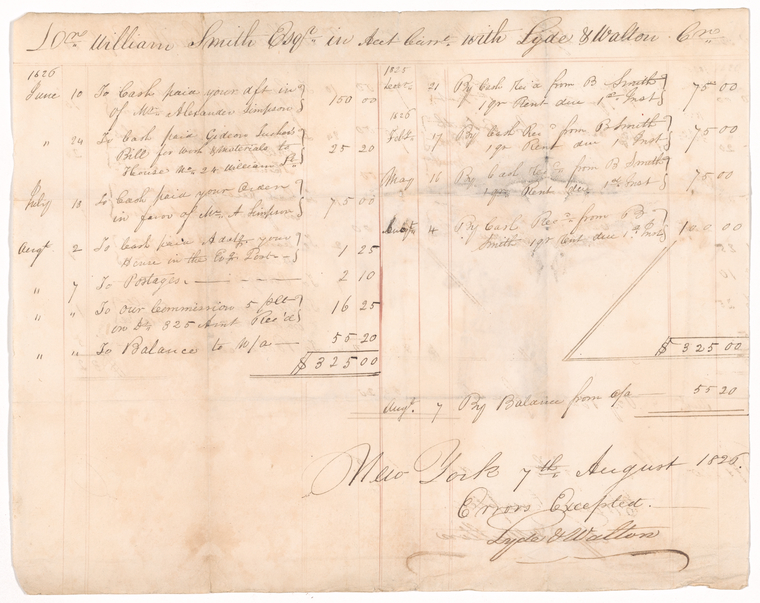 Drs William Smith Esqr. in Act Curr. with Lyde & Walton. Crs
1826
June 10 To Cash paid your dft in
of Mr. Alexander Simpson 150 00
" 24 To Cash paid Gideon
Bill for work & materials to
House No. 24 William St. 25 20
July 13 To Cash paid your Order
in favor of Mr. A Simpson 75 00
Augt 2 To Cash paid Adv for your
House in the Post 1 25
" 7 To Postages 2 10
" " To our Commission 5 pCt
on Ds. 325 Amt Rec'd 16 25
" " To Balance to N/a 55 20
$ 325 00
1825
21 By Cash Rec'd from B Smith
1 qr Rent due 1st Inst 75 00
1826
Feb. 17 By Cash Rec'd from B Smith
1 qr Rent due 1st Inst 75 00
May 16 By Cash Rec'd from B Smith
1 qr Rent due 1st Inst 75 00
August 4 By Cash Rec'd from B
Smith 1 qr Rent due 1st Inst 100 00
$ 325 00
Augt. 7 By Balance from o/a 55 20
New York 7th August 1826.
Errors Excepted.
Lyde & Walton